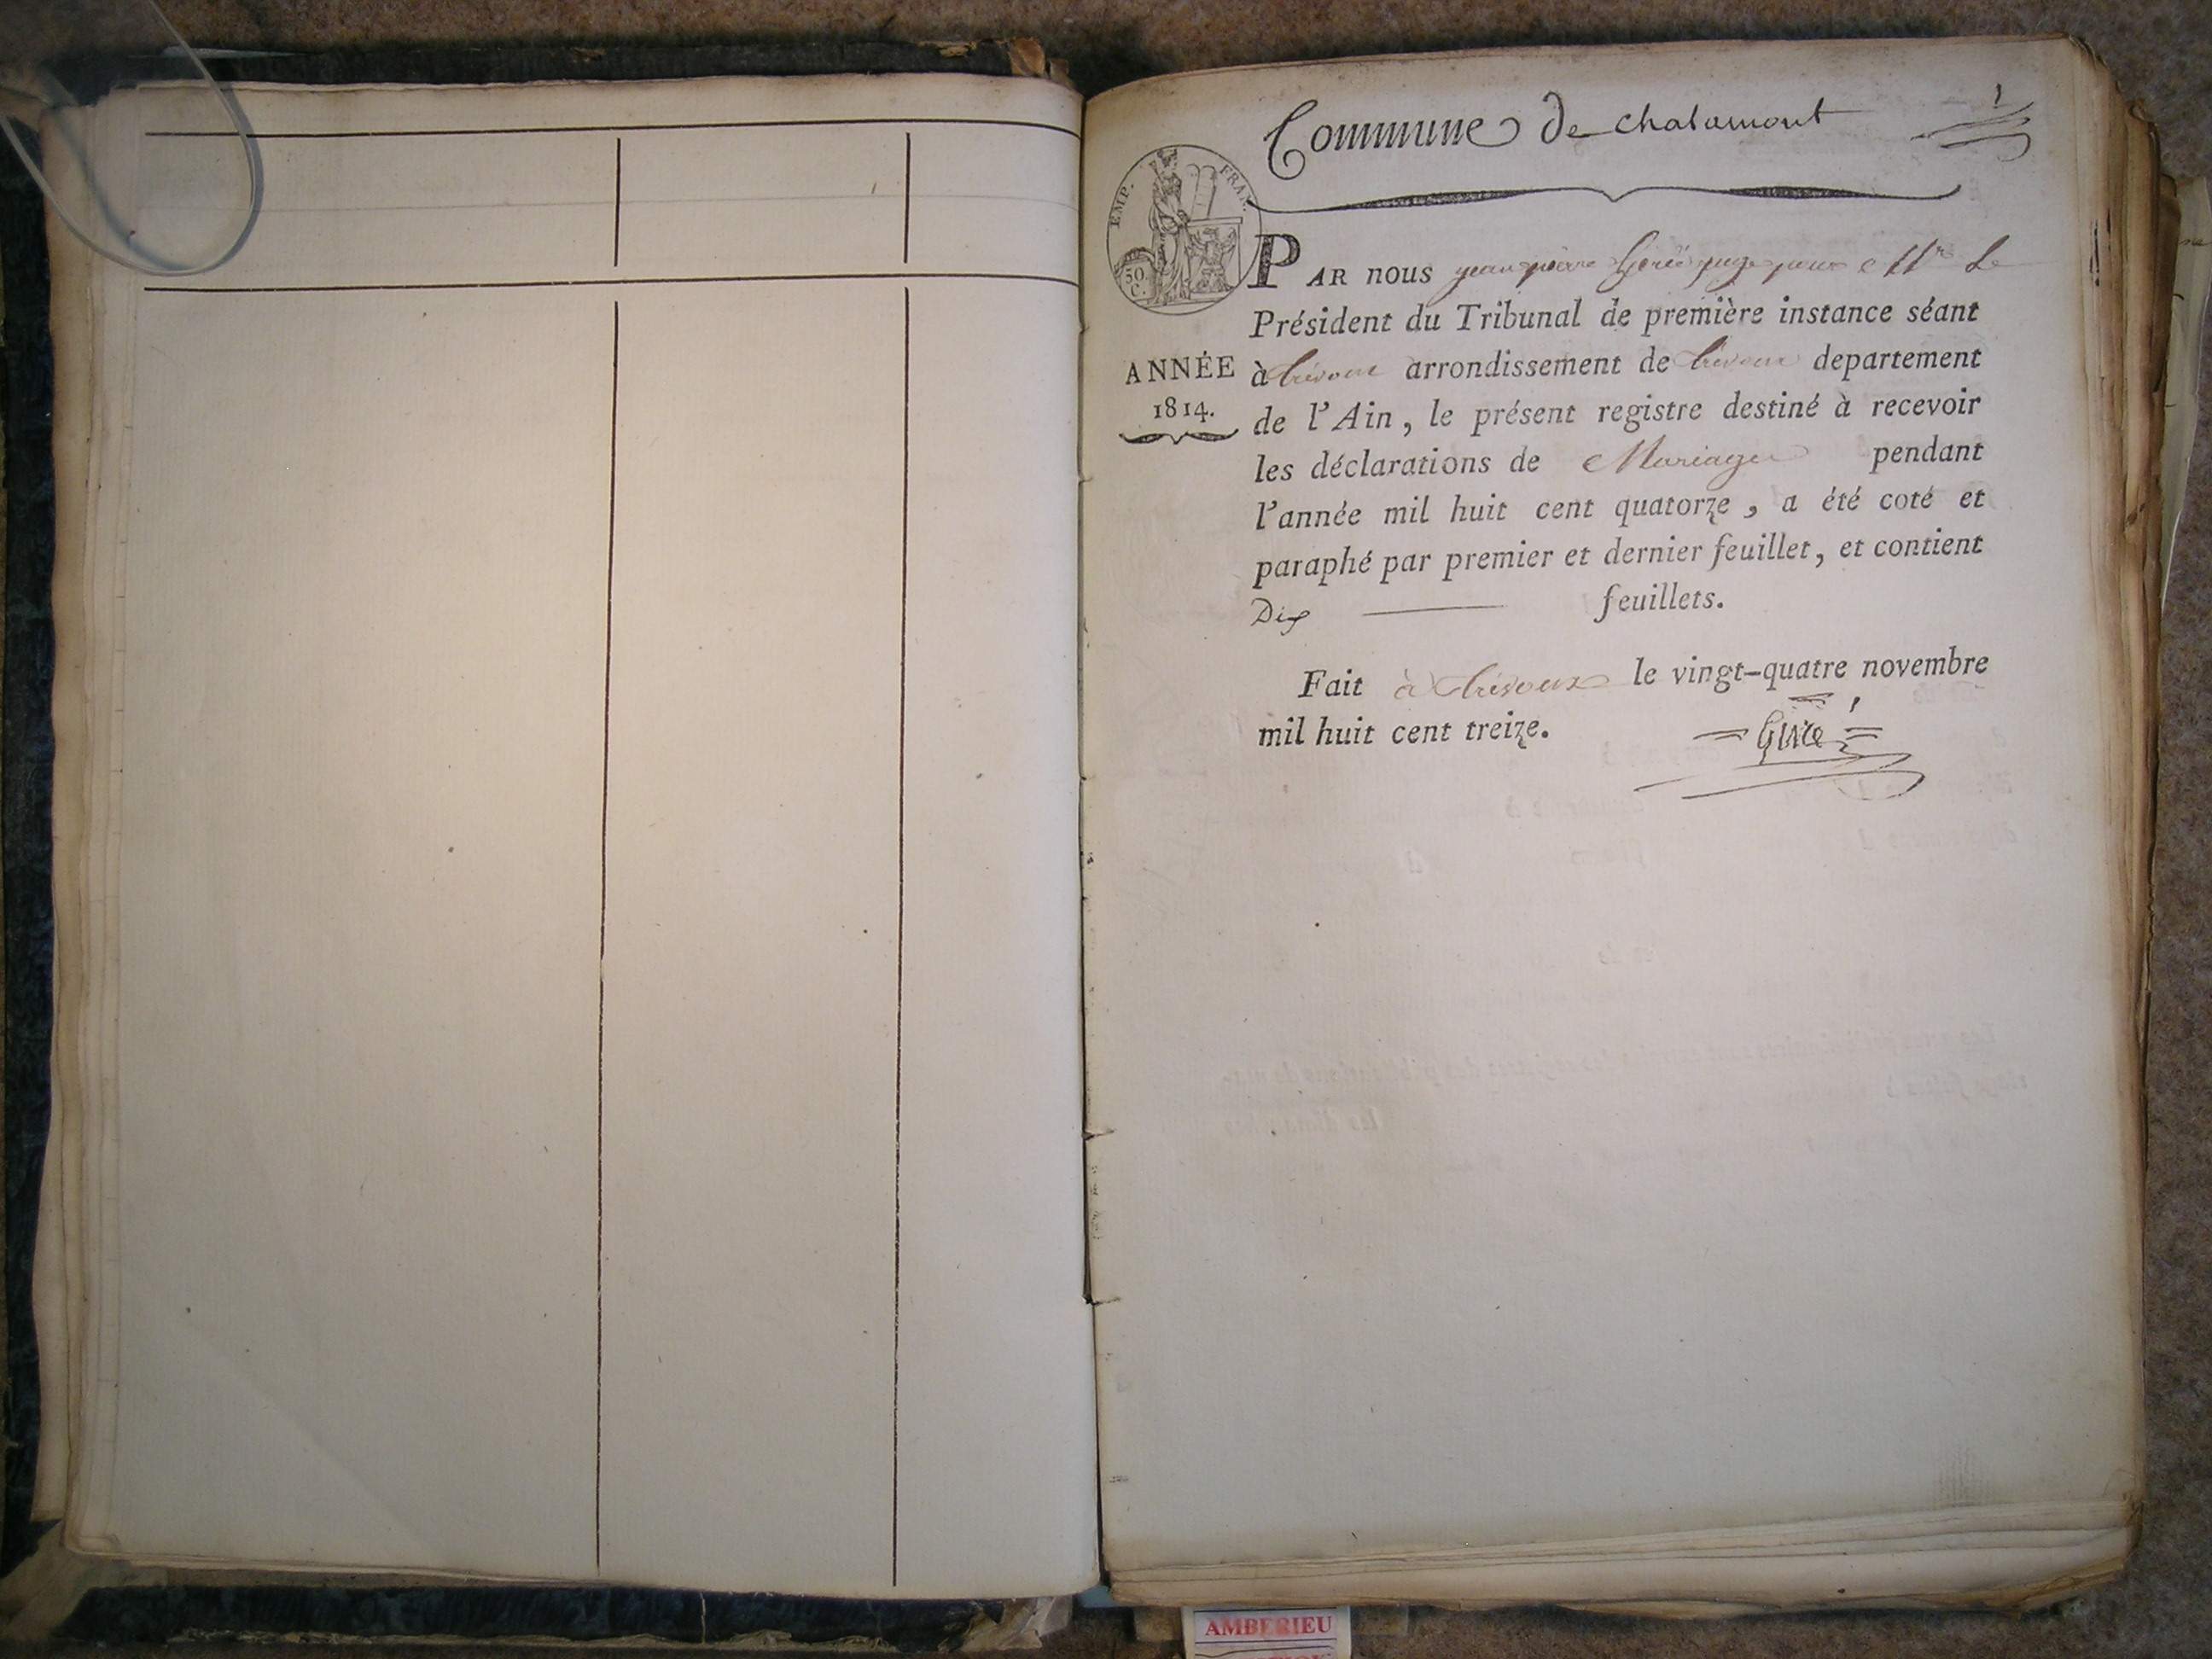 Commune de chalamont
1
EMP. FRAN.
50
C.
PAR nous jean pierre juge pour Mr. Le
Président du Tribunal de première instance séant
ANNÉE
1814.
à trévoux arrondissement de trévoux departement
de l'Ain, le présent registre destiné à recevoir
les déclarations de Mariages pendant
l'année mil huit cent quatorze, a été coté et
paraphé par premier et dernier feuillet, et contient
Dix feuillets.
Fait à trévoux le vingt-quatre novembre
mil huit cent treize.
AMBERIEU